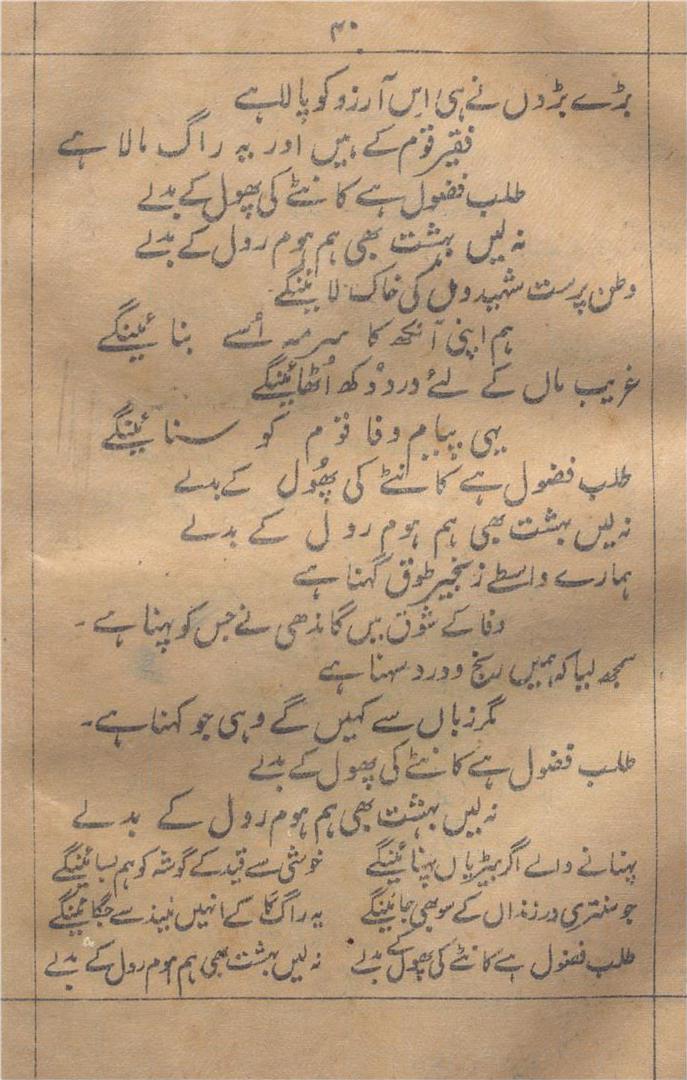 ۳۰
بڑے بڑوں نے ہی اِس آرزو کو پالا ہے
فقیر قوم کے ہیں اور یہ راگ مالا ہے
طلب فضول ہے کانٹے کی پھول کے بدلے
نہ لیں بہشت بھی ہم ہوم رول کے بدلے
وطن پرست شہیدوں کی خاک لائینگے
ہم اپنی آنکھ کا سرمہ اُسے بنائینگے
غریب ماں کے لئے درد دُکھ اُٹھائینگے
یہی پیام وفا قوم کو سنائینگے
طلب فضول ہے کانٹے کی پھُول کے بدلے
نہ لیں بہشت بھی ہم ہوم رول کے بدلے
ہمارے واسطے زنجیر طوق گہنا ہے
وفا کے شوق میں گاندھی نے جس کو پہنا ہے۔
سمجھ لیا کہ ہمیں رنج و درد سہنا ہے
مگر زباں سے کہیں گے وہی جو کہنا ہے۔
طلب فضول ہے کانٹے کی پھول کے بدلے
نہ لیں بہشت بھی ہم ہوم رول کے بدلے
پہنانے والے اگر بیڑیاں پہنائینگے خوشی سے قید کے گوشہ کو ہم بسائینگے
جو سنتری در زنداں کے سو بھی جائینگے یہ راگ گا کے انہیں نیند سے جگائینگے
طلب فضول ہے کانٹے کی پھول کے بدلے نہ لیں بہشت بھی ہم ہوم رول کے بدلے